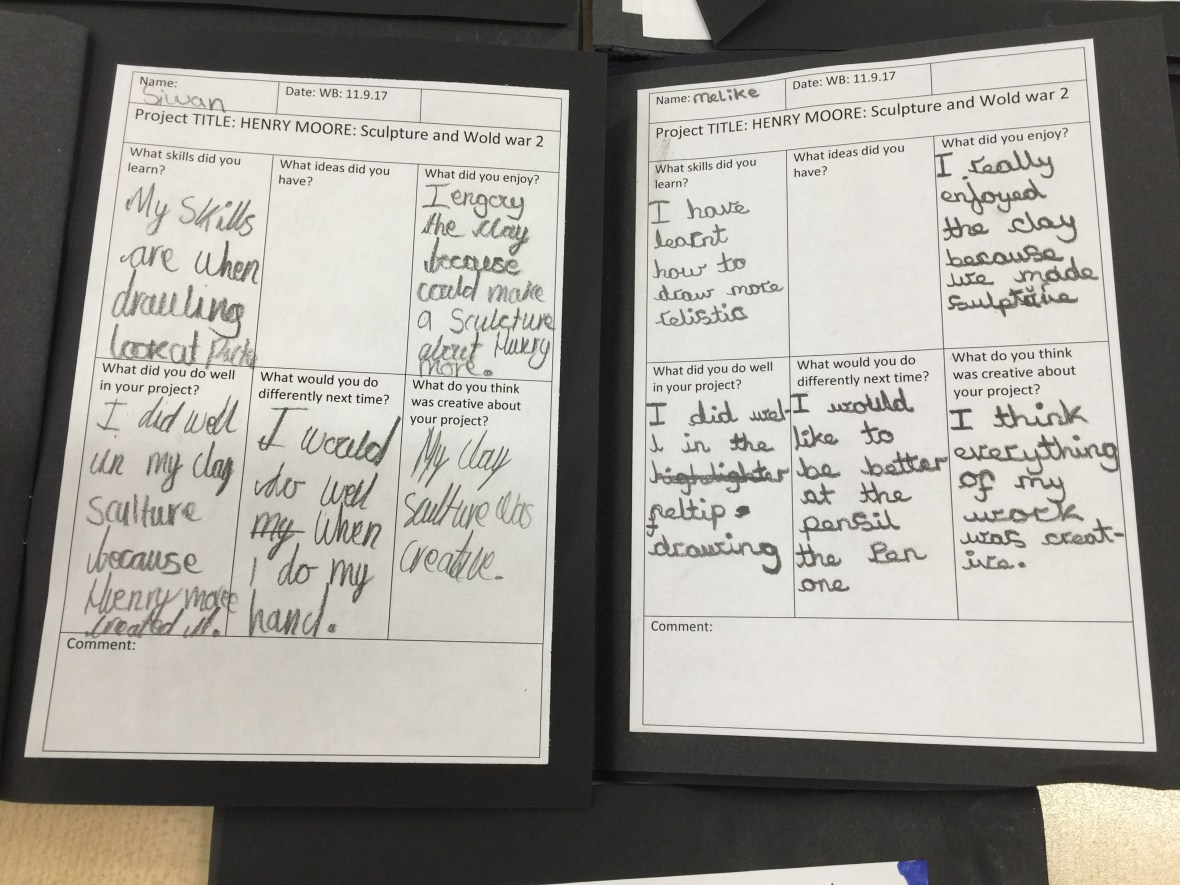 Name:
Siwan
Date: WB: 11.9.17
Project TITLE: HENRY MOORE: Sculpture and Wold war 2
What skills did you
learn?
My Skills
are when
drawling
look at
What ideas did you
have?
What did you enjoy?
I engoy
the clay
because
could make
a Sculcture
about Henry
More.
What did you do well
in your project?
I did well
in my clay
Sculture
because
Henry more
created it.
What would you do
differently next time?
I would
do well
my when
I do my
hand.
What do you think
was creative about
your project?
My Clay
Sculture was
Creative.
Comment:
Name: melike
Date: WB: 11.9.17
Project TITLE: HENRY MOORE: Sculpture and Wold war 2
What skills did you
learn?
I have
learnt
how to
draw more
relistic
What ideas did you
have?
What did you enjoy?
I really
enjoyed
the clay
because
we made
What did you do well
in your project?
I did wel-
l in the
highlighter
feltip
drawing
What would you do
differently next time?
I would
like to
be better
at the
pensil
the Pen
one
What do you think
was creative about
your project?
I think
everything
of my
work
was creat-
ive.
Comment: